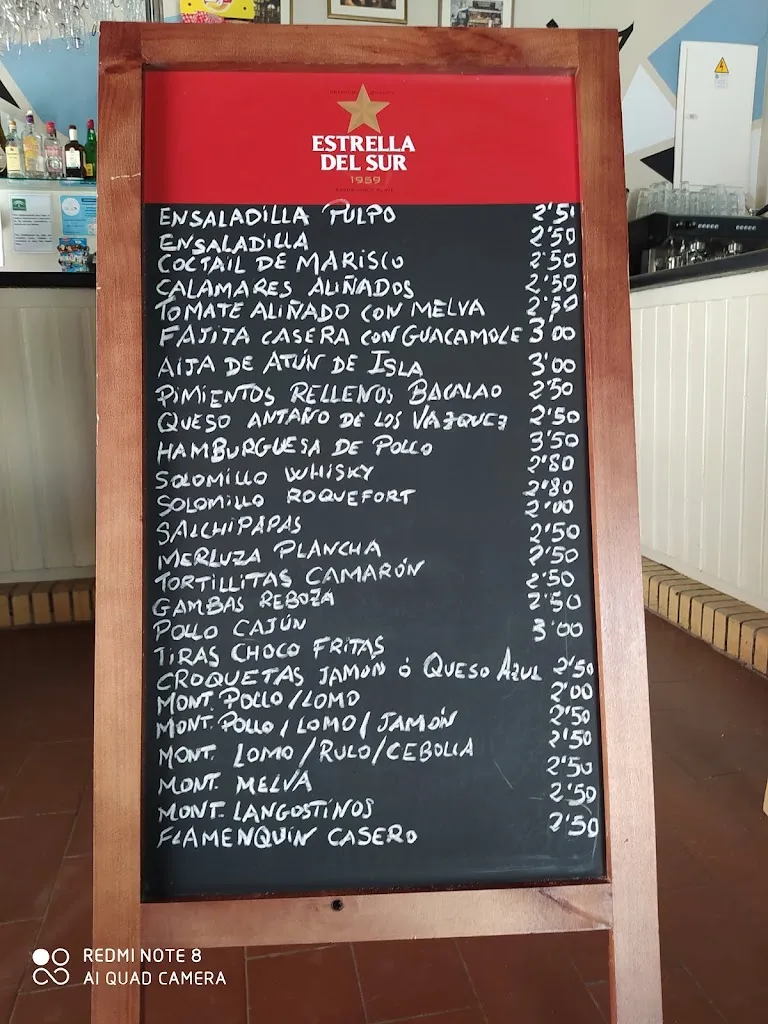 ESTRELLA
DEL SUR
1959
ENSALADILLA PULPO 2'50
ENSALADILLA 2'50
COCTAIL DE MARISCO 2'50
CALAMARES ALIÑADOS 2'50
TOMATE ALIÑADO CON MELVA 2'50
FAJITA CASERA CON GUACAMOLE 3'00
AIJA DE ATÚN DE ISLA 3'00
PIMIENTOS RELLENOS BACALAO 2'50
QUESO ANTAÑO DE LOS VAZQUEZ 2'50
HAMBURGUESA DE POLLO 3'50
SOLOMILLO WHISKY 2'80
SOLOMILLO ROQUEFORT 2'80
SALCHIPAPAS 2'00
MERLUZA PLANCHA 2'50
TORTILLITAS CAMARÓN 2'50
GAMBAS REBOZÁ 2'50
POLLO CAJÚN 2'50
TIRAS CHOCO FRITAS 3'00
CROQUETAS JAMON ó QUESO AZUL 2'50
MONT. POLLO/LOMO 2'00
MONT. POLLO/LOMO/JAMÓN 2'50
MONT. LOMO/RULO/CEBOLLA 2'50
MONT. MELVA 2'50
MONT. LANGOSTINOS 2'50
FLAMENQUÍN CASERO 2'50
REDMI NOTE 8
AI QUAD CAMERA